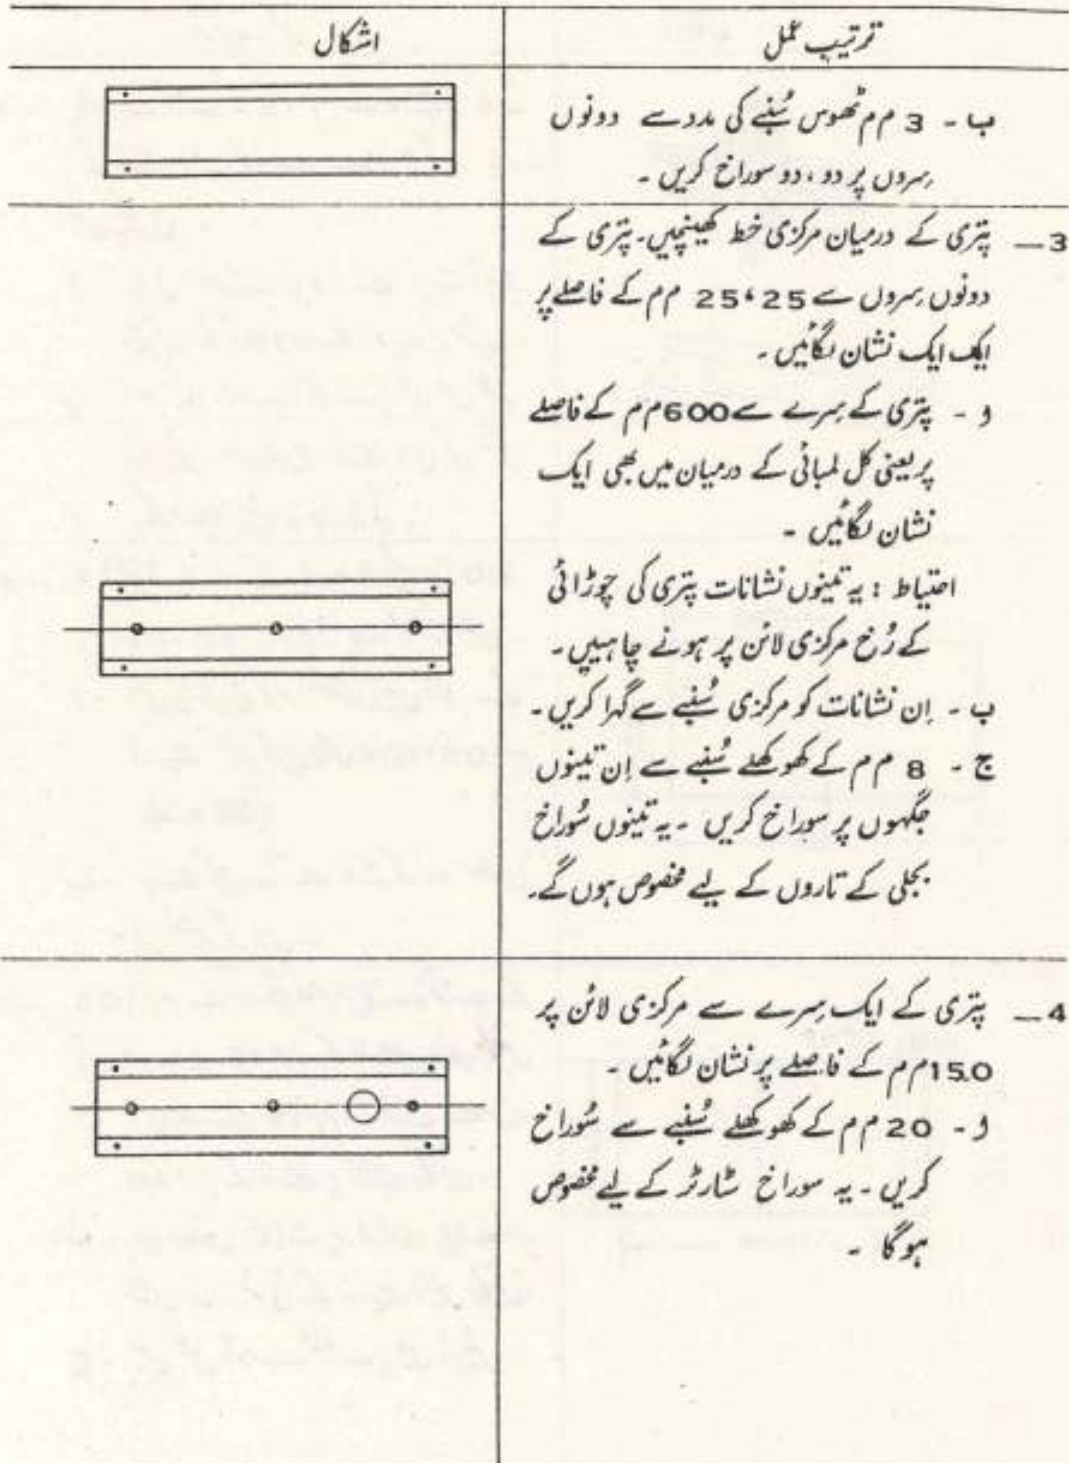 ترتیب عمل
اشکال
ب - 3 م م ٹھوس سُنبے کی مدد سے دونوں
سِروں پر دو، دو سوراخ کریں ۔
3 — پتری کے درمیان مرکزی خط کھینچیں۔ پتری کے
دونوں سِروں سے 25، 25 م م کے فاصلے پر
ایک ایک نشان لگائیں ۔
ا - پتری کے سِرے سے 600 م م کے فاصلے
پر یعنی کل لمبائی کے درمیان میں بھی ایک
نشان لگائیں ۔
احتیاط : یہ تینوں نشانات پتری کی چوڑائی
کے رُخ مرکزی لائن پر ہونے چاہییں ۔
ب - اِن نشانات کو مرکزی سُنبے سے گہرا کریں ۔
ج - 8 م م کے کھوکھلے سُنبے سے اِن تینوں
جگہوں پر سوراخ کریں ۔ یہ تینوں سُوراخ
بجلی کے تاروں کے لیے مخصوص ہوں گے ۔
4 — پتری کے ایک سِرے سے مرکزی لائن پر
150 م م کے فاصلے پر نشان لگائیں ۔
ا - 20 م م کے کھوکھلے سُنبے سے سُوراخ
کریں ۔ یہ سوراخ سٹارٹر کے لیے مخصوص
ہوگا ۔